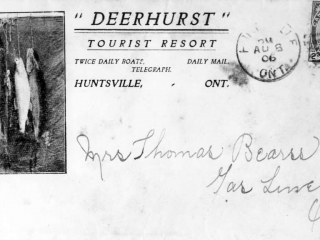 " DEERHURST "
TOURIST RESORT
TWICE DAILY BOATS. DAILY MAIL.
TELEGRAPH.
HUNTSVILLE, - ONT.
AU 8
06
ONT.
Mrs Thomas Bearss
Gas Line